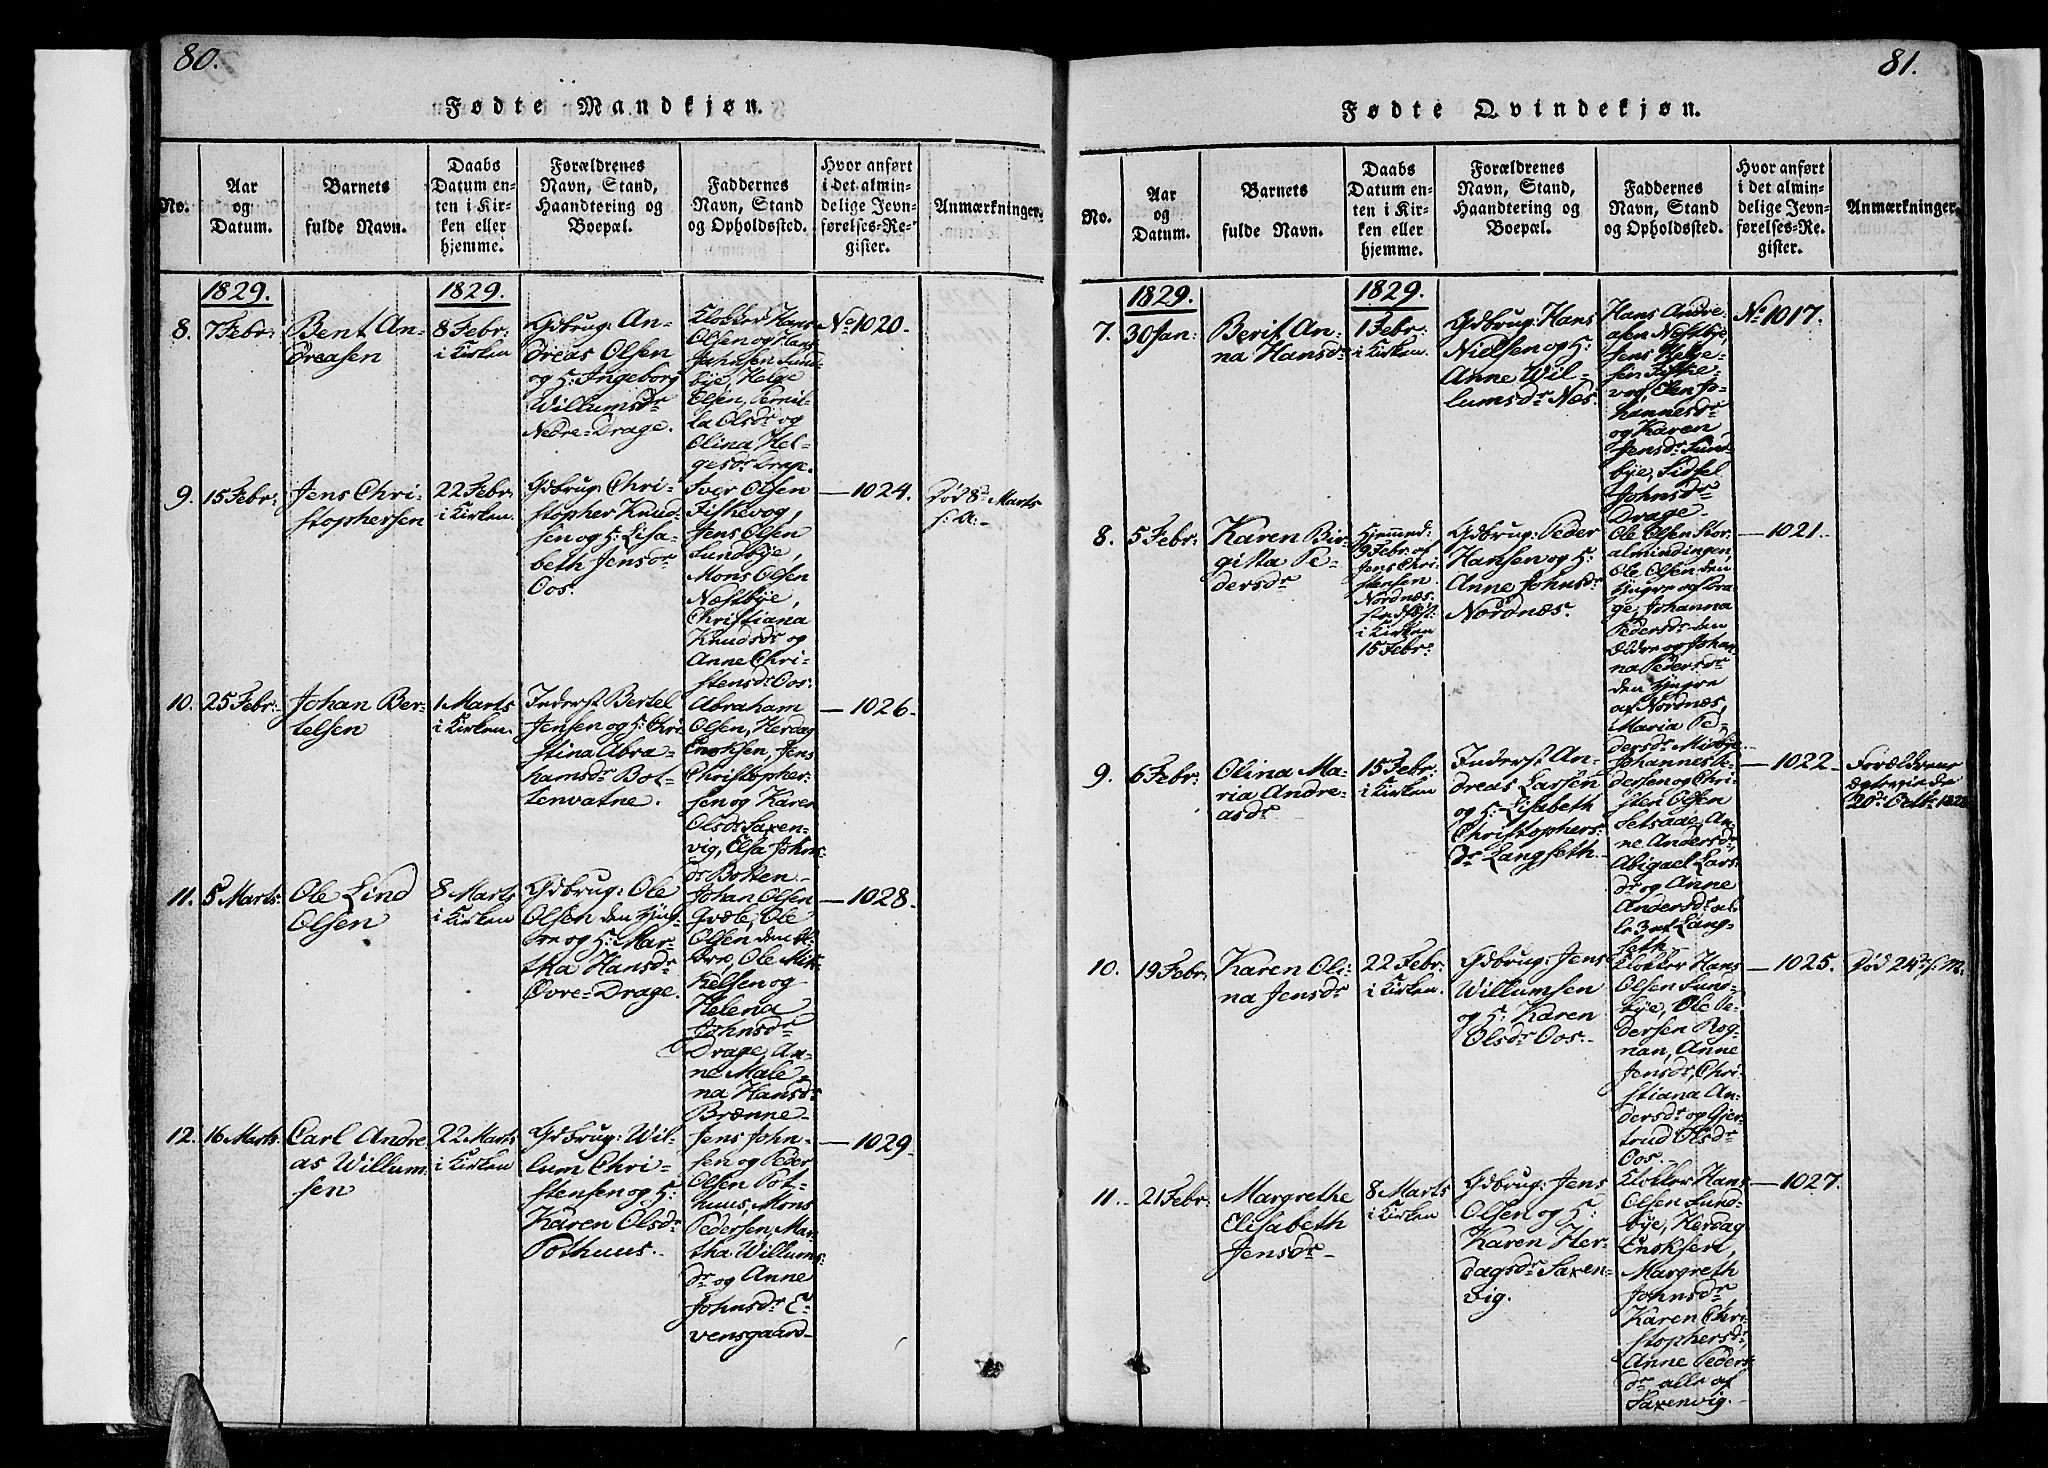 80.
Fødte Mandkjøn.
No.
Aar
og
Datum.
Barnets
fulde Navn.
Daabs
Datum en-
ten i Kir-
ken eller
hjemme.
Forældrenes
Navn, Stand,
Haandtering og
Boepæl.
Faddernes
Navn, Stand
og Opholdssted.
Hvor anført
i det almin-
delige Jevn-
førelses-Re-
gister.
Anmærkninger.
1829.
1829.
8.
7 Febr:
Bent An-
dreasen
8 Febr:
i Kirken
Gdbrug: An-
dreas Olsen
og H: Ingeborg
Willumsdr
Nedre-Drage.
Klokker Hans
Olsen og Hans
Jahnsen Sund-
bye, Helge
Olsen, Pernil-
la Olsdr og
Olina Hel-
gesdr Drage.
No 1020.
9.
15 Febr:
Jens Chri-
stophersen
22 Febr:
i Kirken.
Gdbrug: Chri-
stopher Knud-
sen og H: Lisa-
beth Jensdr
Oos.
Iver Olsen
Fiskevog,
Jens Olsen
Sundbye,
Mons Olsen
Næstbye,
Christiana
Knudsdr og
Anne Chri-
stensdr Oos.
— 1024.
Død 8de Marts
s: A:
10.
25 Febr:
Johan Ber-
telsen
1 Marts
i Kirken.
Inderst Bertel
Jensen og H: Chri-
stina Abra-
hamsdr Bot-
tenvatne.
Abraham
Olsen, Herdag
Enoksen, Jens
Christopher-
sen og Karen
Olsdr Saxen-
vig, Elsa Johns-
dr Botten.
— 1026.
11.
5 Marts
Ole Lind
Olsen
8 Marts
i Kirken
Gdbrug: Ole
Olsen den Yng-
re og H: Mar-
tha Hansdr
Øvre-Drage.
Johan Olsen
Qvæle, Ole
Olsen den Æl-
dre, Ole Mik-
kelsen og
Helena
Johnsdr
Drage, An-
ne Male-
na Hansdr
Brænne
— 1028.
12.
16 Marts
Carl Andre
as Willum-
sen
22 Marts
i Kirken
Gdbrug: Wil-
lum Chri-
stensen og H:
Karen Olsdr
Pothuus.
Jens John-
sen og Peder
Olsen Pot-
huus, Mons
Pedersen, Mar-
tha Willums-
dr og Anne
Johnsdr E-
vensgaard
— 1029.
81.
Fødte Qvindekjøn.
No.
Aar
og
Datum.
Barnets
fulde Navn.
Daabs
Datum en-
ten i Kir-
ken eller
hjemme.
Forældrenes
Navn, Stand,
Haandtering og
Boepæl.
Faddernes
Navn, Stand
og Opholdssted.
Hvor anført
i det almin-
delige Jevn-
førelses-Re-
gister.
Anmærkninger.
1829.
1829.
7.
30 Jan:
Berit An-
na Hansdr
1 Febr:
i Kirken.
Gdbrug: Hans
Nielsen og H:
Anne Wil-
lumsdr Næs.
Hans Andre-
asen Næstbye,
Jens Helge-
sen Fiske-
vog, Elen Jo-
hannesdr
og Karen
Jensdr Sund-
bye, Sidsel
Johnsdr
Drage
No 1017.
8.
5 Febr:
Karen Bir-
gitta Pe-
dersdr
Hjemmed:
9 Febr: af
Jens Chri-
stensen
Nordnæs
stadfæst:
i Kirken
15 Febr:
Gdbrug: Peder
Hansen og H:
Anne Johnsdr
Nordnæs.
Ole Olsen Stor-
almindingen,
Ole Olsen den
Yngre af Dra-
ge, Johanna
Pedersdr den
Ældre og Johan-
na Pedersdr
den Yngre
af Nordnæs,
Maria Pe-
dersdr Medbye.
— 1021.
9.
6 Febr:
Olina Ma-
ria Andre-
asdr
15 Febr:
i Kirken
Inderst An-
dreas Larsen
og H: Lisabeth
Christophers-
dr Langseth.
Johannes Pe-
dersen og Chri-
sten Olsen
Setsaae, An-
ne Andersdr,
Abigael Lars-
dr og Anne
Andersdr al-
le 3 af Lang-
seth
— 1022.
Forældrene
ægteviede
20de Octbr 1828
10.
19 Febr:
Karen Oli-
na Jensdr
22 Febr:
i Kirken.
Gdbrug: Jens
Willumsen
og H: Karen
Olsdr Oos.
Klokker Hans
Olsen Sund-
bye, Ole Pe-
dersen Rog-
nan, Anne
Jensdr, Chri-
stiana An-
dersdr og Gjer-
trud Olsdr
Oos.
— 1025.
Død 24de s: M.
11.
21 Febr:
Margrethe
Elisabeth
Jensdr
8 Marts
i Kirken
Gdbrug: Jens
Olsen og H:
Karen Her-
dagsdr Saxen-
vig.
Klokker Hans
Olsen Sund-
bye, Herdag
Enoksen,
Margreth
Johnsdr,
Karen Chri-
stophersdr,
Anne Peders-
dr alle af
Saxenvig.
— 1027.